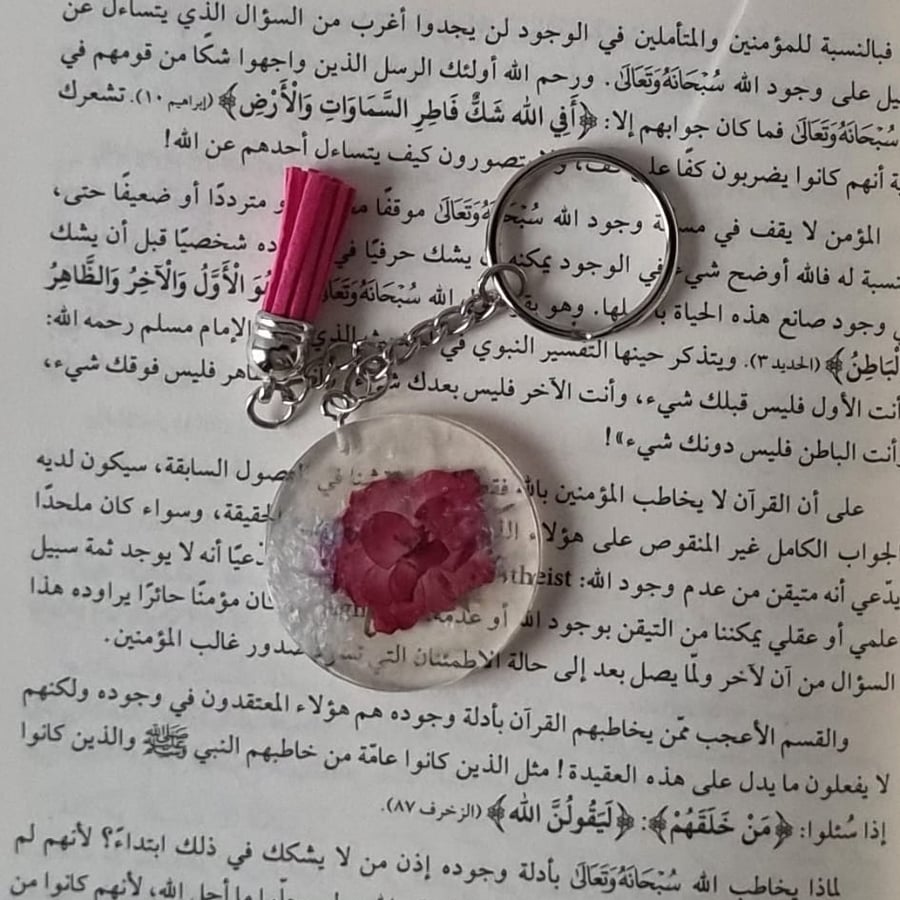 فبالنسبة للمؤمنين والمتأملين في الوجود لن يجدوا أغرب من السؤال الذي يتساءل عن
على وجود الله سُبْحَانَهُ وَتَعَالَىٰ. ورحم الله أولئك الرسل الذين واجهوا شكًا من قومهم في
سُبْحَانَهُ وَتَعَالَىٰ فما كان جوابهم إلا: ﴿أَفِي اللَّهِ شَكٌّ فَاطِرِ السَّمَاوَاتِ وَالْأَرْضِ﴾ (إبراهيم ١٠). تشعرك
أنهم كانوا يضربون كفًا على كف، يتصورون كيف يتساءل أحدهم عن الله!
المؤمن لا يقف في وجود الله سُبْحَانَهُ وَتَعَالَىٰ موقفًا مترددًا أو ضعيفًا حتى،
له فالله أوضح شيء في الوجود يمكنه يشك حرفيًا في شخصيًا قبل أن يشك
وجود صانع هذه الحياة وهو الله سُبْحَانَهُ وَتَعَالَىٰ الْأَوَّلُ وَالْآخِرُ وَالظَّاهِرُ
﴾ (الحديد ٣). ويتذكر حينها التفسير النبوي في الذي الإمام مسلم رحمه الله:
أنت الأول فليس قبلك شيء، وأنت الآخر فليس بعدك فليس فوقك شيء،
وأنت الباطن فليس دونك شيء»!
على أن القرآن لا يخاطب المؤمنين بالله في السابقة، سيكون لديه
الجواب الكامل غير المنقوص على هؤلاء وسواء كان ملحدًا
يدّعي أنه متيقن من عدم وجود الله: theist أنه لا يوجد ثمة سبيل
علمي أو عقلي يمكننا من التيقن بوجود الله أو مؤمنًا حائرًا يراوده هذا
السؤال من آن لآخر ولمّا يصل بعد إلى حالة الاطمئنان التي صدور غالب المؤمنين.
والقسم الأعجب ممّن يخاطبهم القرآن بأدلة وجوده هم هؤلاء المعتقدون في وجوده ولكنهم
لا يفعلون ما يدل على هذه العقيدة! مثل الذين كانوا عامّة من خاطبهم النبي ﷺ والذين كانوا
إذا سُئلوا: ﴿مَنْ خَلَقَهُمْ﴾: ﴿لَيَقُولُنَّ اللَّهُ﴾ (الزخرف ٨٧).
لماذا يخاطب الله سُبْحَانَهُ وَتَعَالَىٰ بأدلة وجوده إذن من لا يشكك في ذلك ابتداءً؟ لأنهم لم
الله، لأنهم كانوا من